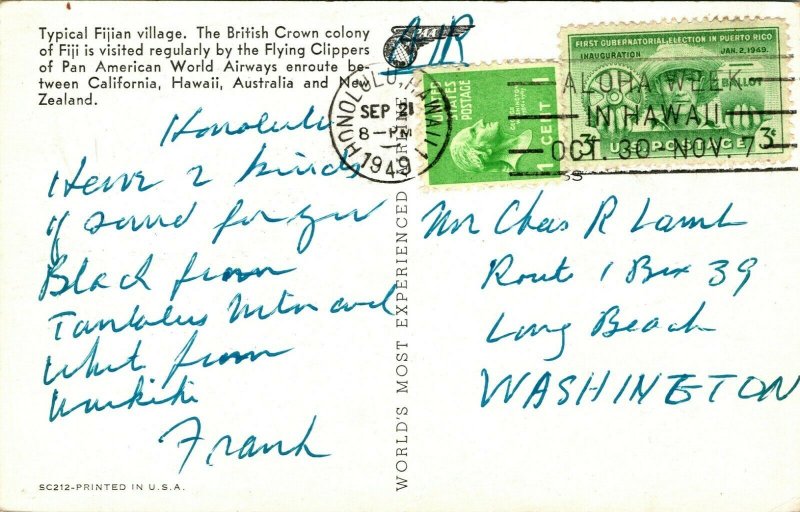 Typical Fijian village. The British Crown colony
of Fiji is visited regularly by the Flying Clippers
of Pan American World Airways enroute be-
tween California, Hawaii, Australia and New
Zealand.
AIR
HONOLULU, HAWAII 1
SEP 21
8-PM
1949
UNITED STATES POSTAGE
1 CENT 1
FIRST GUBERNATORIAL ELECTION IN PUERTO RICO
INAUGURATION JAN. 2, 1949.
BALLOT
3¢ U.S. POSTAGE 3¢
ALOHA WEEK
IN HAWAII
OCT. 30-NOV. 7
Honolulu
Have 2 kinds
of sand for you
Black from
Tantalus Mtn and
White from
Waikiki
Frank
WORLD'S MOST EXPERIENCED AIRLINE
Mr Chas R Lamb
Route 1 Box 39
Long Beach
WASHINGTON
SC212-PRINTED IN U.S.A.